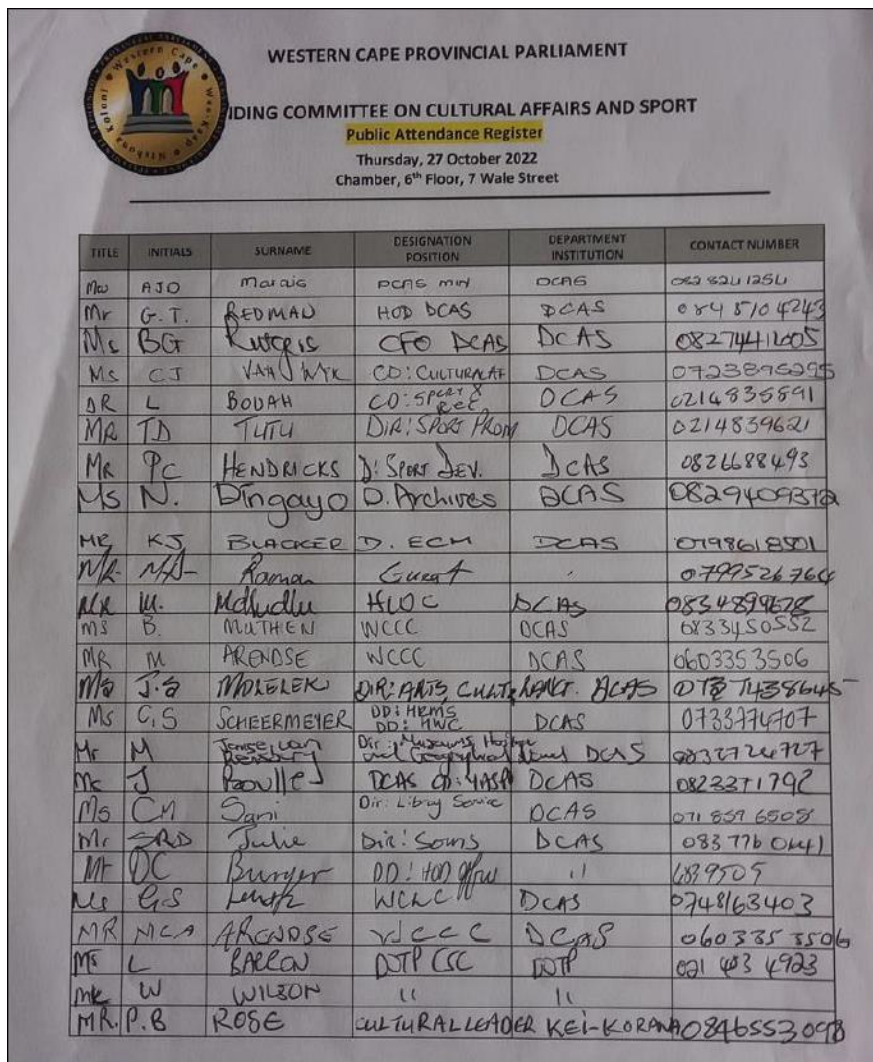 Western Cape • Wes-Kaap • Ntshona Koloni
WESTERN CAPE PROVINCIAL PARLIAMENT
DING COMMITTEE ON CULTURAL AFFAIRS AND SPORT
Public Attendance Register
Thursday, 27 October 2022
Chamber, 6th Floor, 7 Wale Street
TITLE INITIALS SURNAME DESIGNATION POSITION DEPARTMENT INSTITUTION CONTACT NUMBER
AJO Marais DCAS min DCAS
Mr G.T. REDMAN HOD DCAS DCAS 084 5104243
Ms BG Rutgers CFO DCAS DCAS
Ms CJ VAN WYK CD: CULTURAL AF DCAS 0723895295
DR L BOUAH CD: SPORT & REC DCAS 0214835891
MR TD TUTU DIR: SPORT PROM DCAS 0214839621
MR PC HENDRICKS D: SPORT DEV. DCAS 0826688493
Ms N. Dingayo D. Archives DCAS
MR KJ BLACKER D. ECM DCAS 0798618801
MR Raman Guest 0799526764
MR M. Mdludlu HWC DCAS
MS B. MUTHIEN WCCC DCAS 0833450552
MR M ARENDSE WCCC DCAS 0603353506
Ms J.S DIR: ARTS, CULT, LANG. DCAS
Ms C.S SCHEERMEYER DD: HRMS DD: HWC DCAS 0733774707
Mr M Janse van Rensburg Dir: Museums DCAS
J DCAS DCAS 0823371792
Ms CM Sani Dir: Library Service DCAS
Mr SRD Julie Dir: DCAS
Mr DC Burger DD: HOD 11 4839505
Ms DCAS 0748163403
MR MCA ARENDSE WCCC DCAS 060 335 3506
Ms L BARRON DOTP CSC DOTP 021 483 4923
W WILSON 11 11
MR. P.B ROSE CULTURAL LEADER KEI-KORANA 0846553098